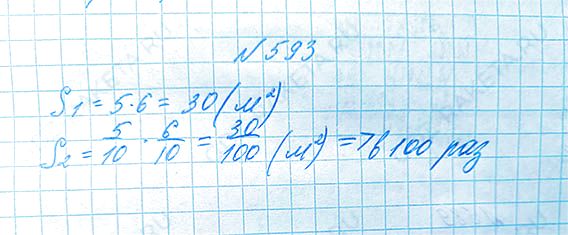 №593
S₁ = 5·6 = 30 (м²)
S₂ = 5/10 · 6/10 = 30/100 (м²) => в 100 раз